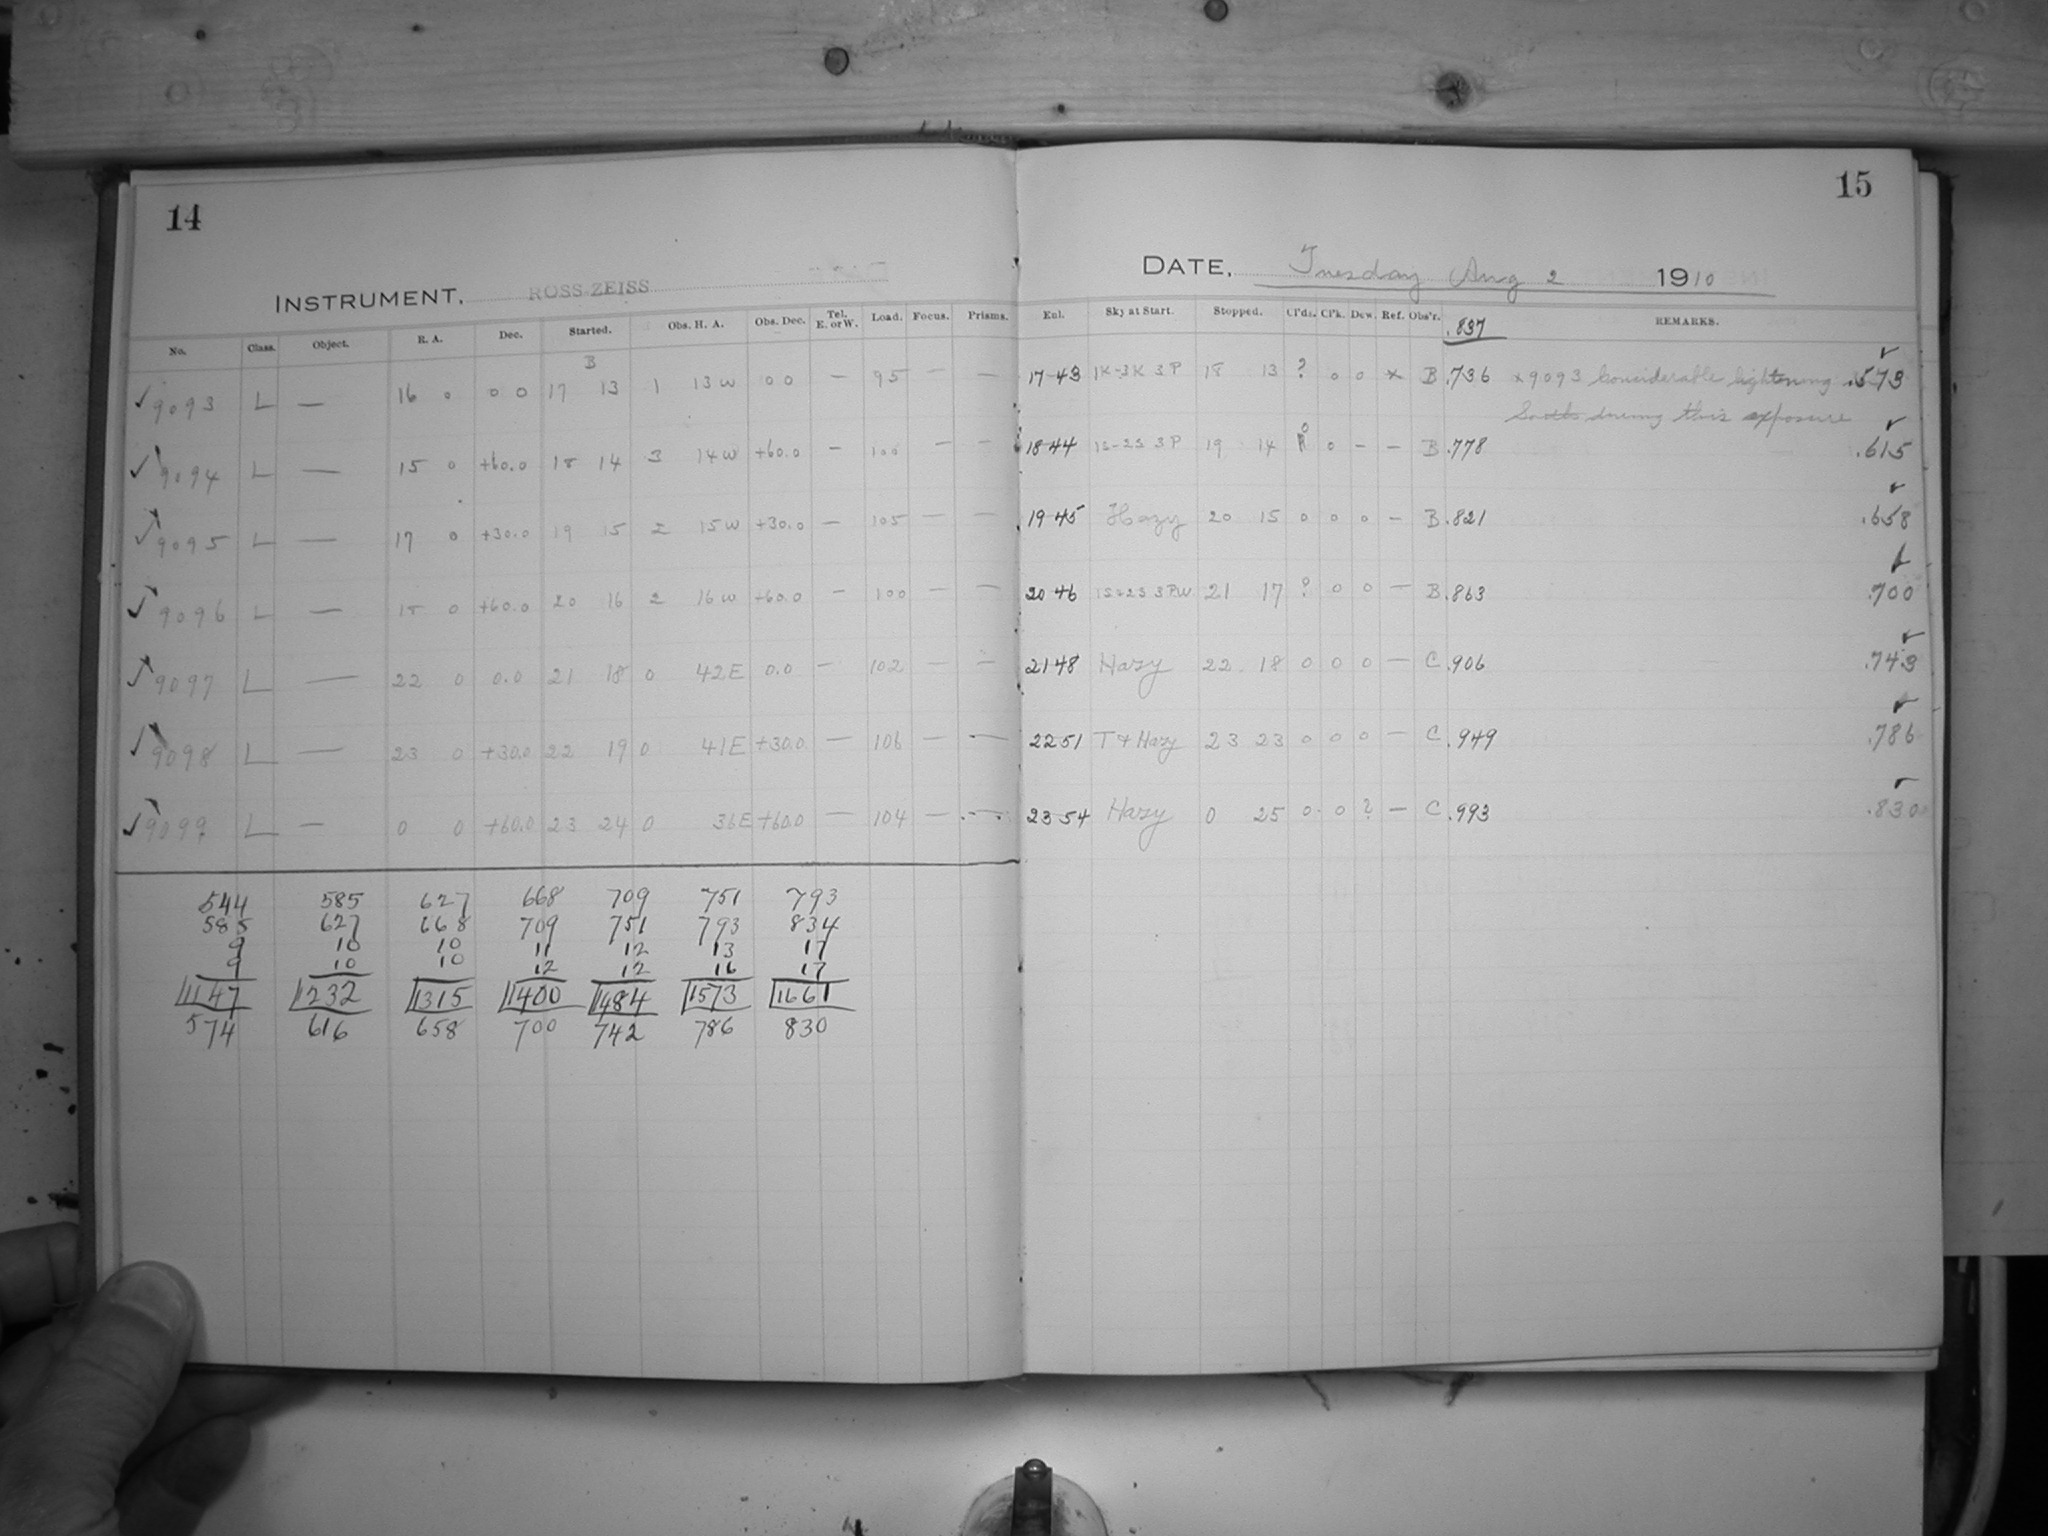 14
INSTRUMENT, ROSS-ZEISS
No. Class. Object. R. A. Dec. Started. Obs. H. A. Obs. Dec. Tel. E. or W. Load. Focus. Prisms.
B
✓ 9093 L — 16 0 0 0 17 13 1 13 W 0 0 — 95 — —
✓ 9094 L — 15 0 +60.0 18 14 3 14 W +60.0 — 100 — —
✓ 9095 L — 17 0 +30.0 19 15 2 15 W +30.0 — 105 — —
✓ 9096 L — 18 0 +60.0 20 16 2 16 W +60.0 — 100 — —
✓ 9097 L — 22 0 0.0 21 18 0 42 E 0.0 — 102 — —
✓ 9098 L — 23 0 +30.0 22 19 0 41 E +30.0 — 106 — —
✓ 9099 L — 0 0 +60.0 23 24 0 36 E +60.0 — 104 — —
544 585 627 668 709 751 793
585 627 668 709 751 793 834
9 10 10 11 12 13 17
9 10 10 12 12 16 17
1147 1232 1315 1400 1484 1573 1661
574 616 658 700 742 786 830
15
DATE, Tuesday Aug 2 1910
Eul. Sky at Start. Stopped. Cl'ds. Cl'k. Dew. Ref. Obs'r. .837 REMARKS.
17 43 1K-3K 3P 18 13 ? 0 0 × B .736 × 9093 Considerable lightening .573 ✓
South during this exposure
18 44 1S-2S 3P 19 14 0 0 — — B .778 .615 ✓
19 45 Hazy 20 15 0 0 0 — B .821 .658 ✓
20 46 1S-2S 3PW 21 17 ? 0 0 — B .863 .700 ✓
21 48 Hazy 22 18 0 0 0 — C .906 .743 ✓
22 51 T & Hazy 23 23 0 0 0 — C .949 .786 ✓
23 54 Hazy 0 25 0 0 ? — C .993 .830 ✓